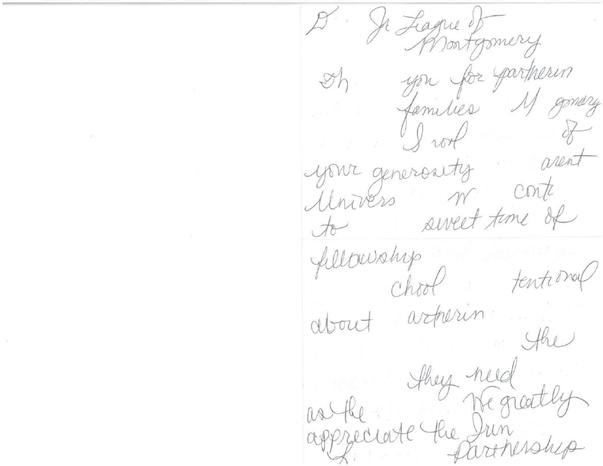 D Jr League of
Montgomery
Th you for partnerin
families M gomery
I wor of
your generosity arent
Univers W conti
to sweet time of
fellowship
chool tentional
about artnerin
the
they need
as the We greatly
appreciate the Jun
L Partnership